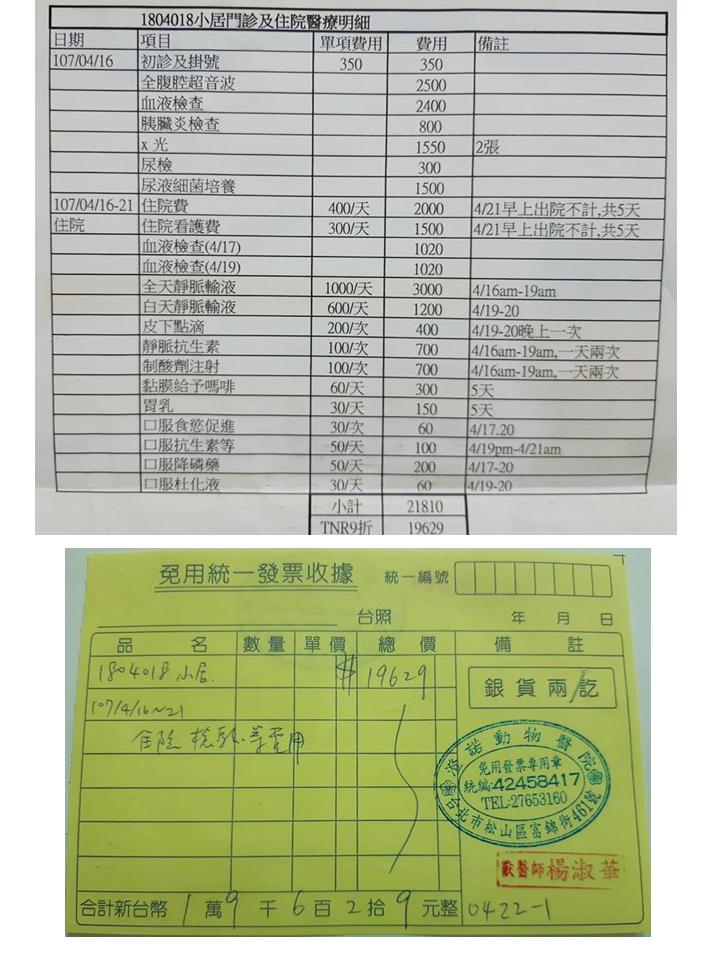 1804018小居門診及住院醫療明細
日期 項目 單項費用 費用 備註
107/04/16 初診及掛號 350 350
全腹腔超音波 2500
血液檢查 2400
胰臟炎檢查 800
x 光 1550 2張
尿檢 300
尿液細菌培養 1500
107/04/16-21 住院費 400/天 2000 4/21早上出院不計,共5天
住院 住院看護費 300/天 1500 4/21早上出院不計,共5天
血液檢查(4/17) 1020
血液檢查(4/19) 1020
全天靜脈輸液 1000/天 3000 4/16am-19am
白天靜脈輸液 600/天 1200 4/19-20
皮下點滴 200/次 400 4/19-20晚上一次
靜脈抗生素 100/次 700 4/16am-19am,一天兩次
制酸劑注射 100/次 700 4/16am-19am,一天兩次
黏膜給予嗎啡 60/天 300 5天
胃乳 30/天 150 5天
口服食慾促進 30/次 60 4/17.20
口服抗生素等 50/天 100 4/19pm-4/21am
口服降磷藥 50/天 200 4/17-20
口服杜化液 30/天 60 4/19-20
小計 21810
TNR9折 19629
免用統一發票收據 統一編號
台照 年 月 日
品名 數量 單價 總價 備註
1804018 小居. $19629
銀貨兩訖
107/4/16~21
住院 檢驗 等費用
諾動物醫院
免用發票專用章
統編:42458417
TEL:27653160
台北市松山區富錦街461號
獸醫師楊淑華
合計新台幣 1 萬 9 千 6 百 2 拾 9 元整 0422-1